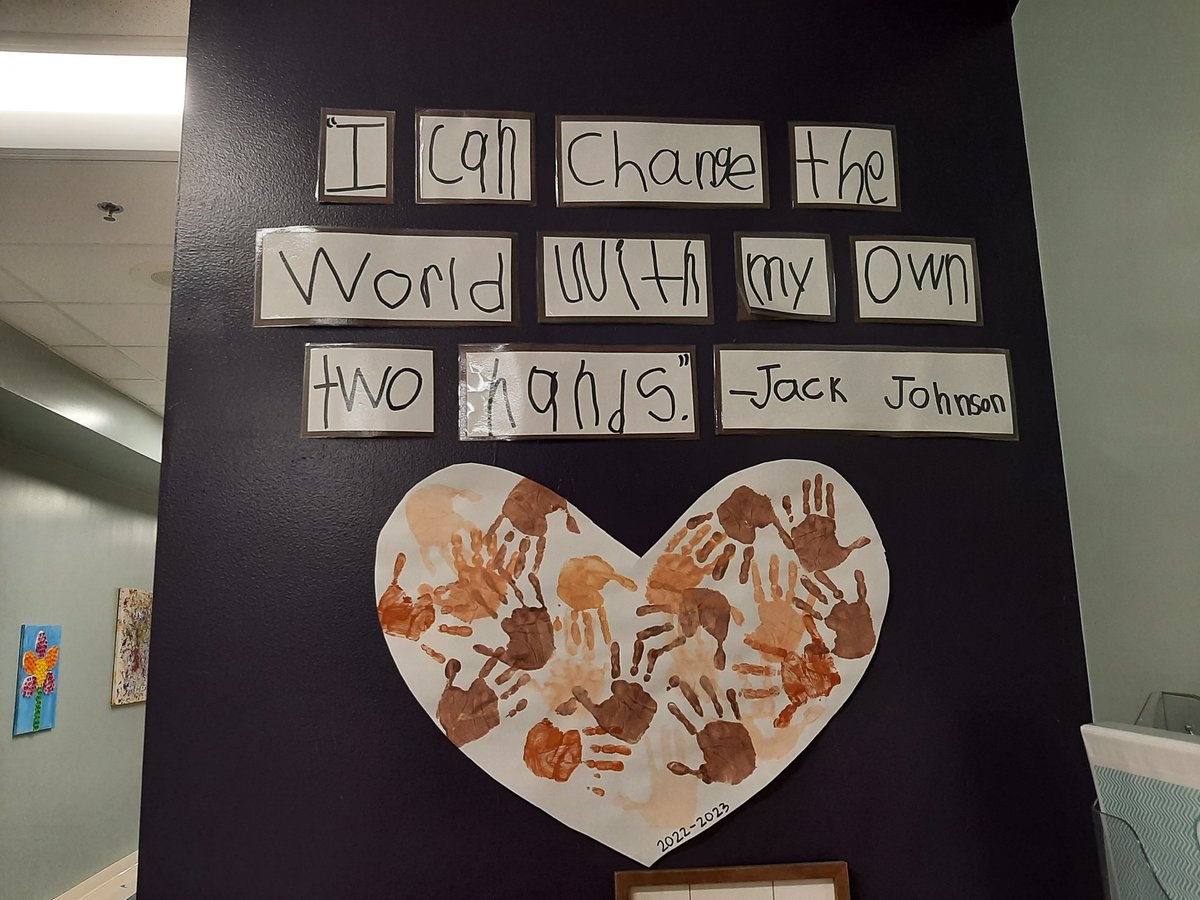 "I can Change the
World With my Own
two hands." -Jack Johnson
2022-2023